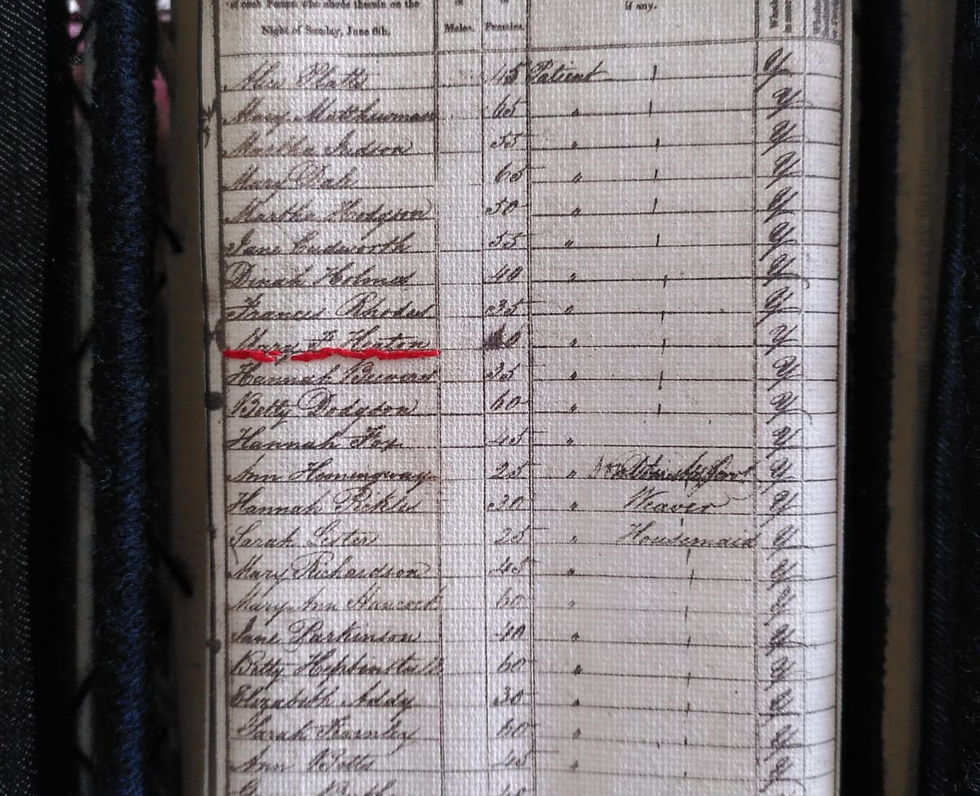 of each Person who abode therein on the Night of Sunday, June 6th. Males. Females. if any.
45 Patient y
Mary 65 " y
Martha Judson 55 " y
Mary Dale 65 " y
Martha Hodgson 50 " y
Jane Cudworth 55 " y
Dinah Holmes 40 " y
Frances Rhodes 35 " y
Mary F Heaton 40 " y
Hannah 35 " y
Betty Dodgson 60 " y
Hannah Fox 45 " y
Ann Hemingway 25 " y
Hannah Pickles 30 " Weaver y
Sarah Lister 25 " Housemaid y
Mary Richardson 45 " y
Mary Ann Hancock 60 " y
Jane Parkinson 40 " y
Betty Heptinstall 60 " y
Elizabeth Addy 30 " y
Sarah 60 " y
Ann Betts 45 " y